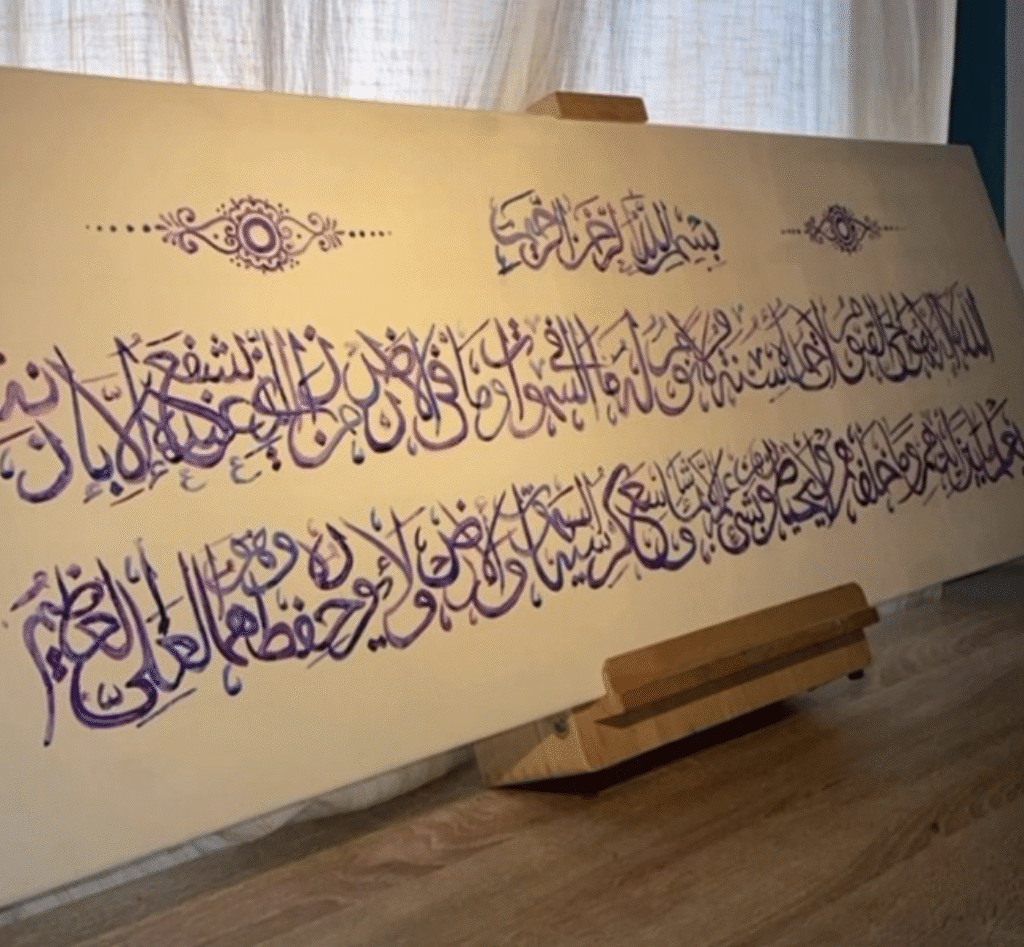 بسم الله الرحمن الرحيم
الله لا إله إلا هو الحي القيوم لا تأخذه سنة ولا نوم له ما في السموات وما في الأرض من ذا الذي يشفع عنده إلا بإذنه
يعلم ما بين أيديهم وما خلفهم ولا يحيطون بشيء من علمه إلا بما شاء وسع كرسيه السموات والأرض ولا يؤوده حفظهما وهو العلي العظيم